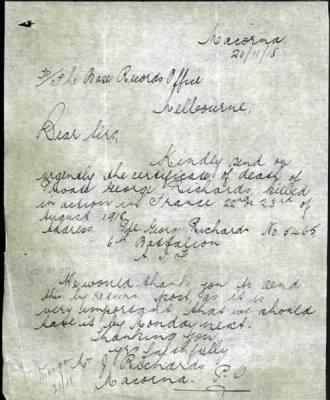 Macorna.
20/11/18
To/ The Base Records Office
Melbourne.
Dear Sirs,
Kindly send on
urgently the certificate of death of
Private George Richards, killed
in action in France 22nd 23rd of
August 1918
address Pte George Richards No. 5465
6th Battalion
A. I. F.
We would thank you to send
this by return post, as it is
very important that we should
have it by Monday next.
Thanking you
yrs faithfully
Mr J Richards
Macorna. P. O
21/11